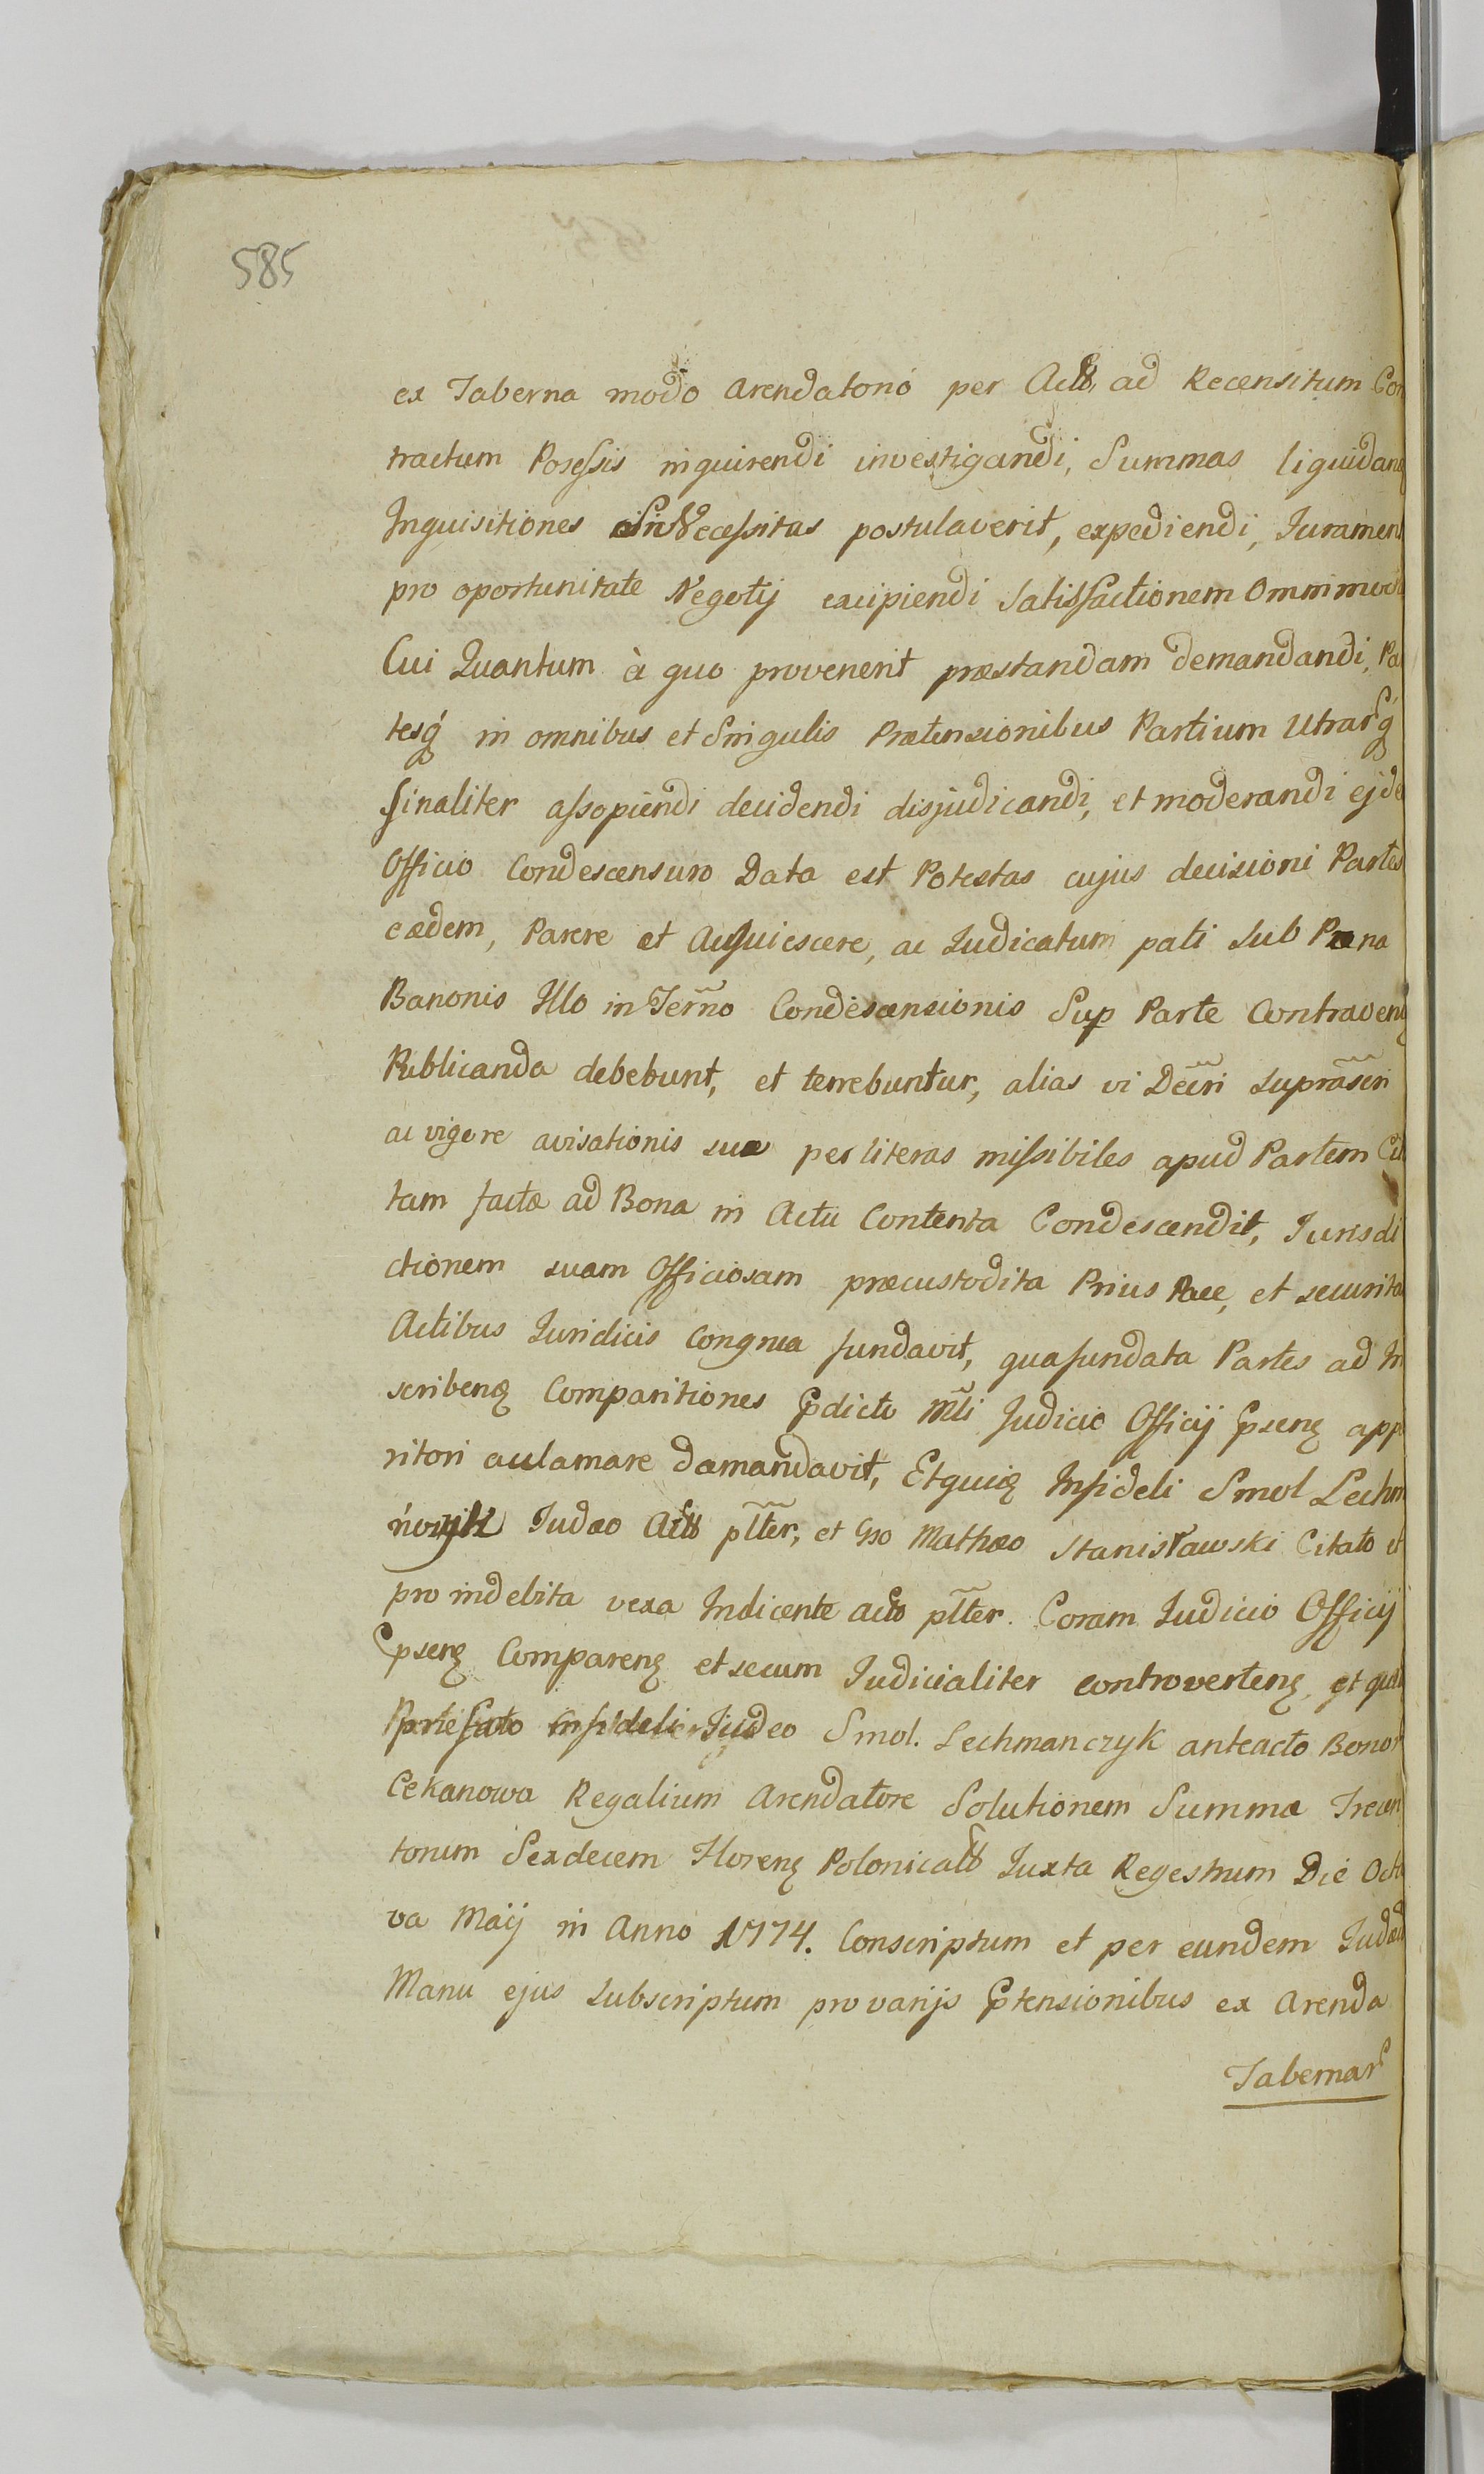 585
ex Taberna modo arendatorio per Actt ad Recensitum Con
tractum Possessis inquirendi investigandi, Summas liquidand
Inquisitiones si Necessitas postulaverit, expediendi, Jurament
pro oportunitate Negotij excipiendi Satisfactionem Omnimod
Cui Quantum à quo provenerit præstandam demandandi, Par
tesq́ in omnibus et Singulis Prætensionibus Partium Utrarq́
finaliter assopiendi decidendi disjudicandi, et moderandi ejde
Officio Condescensuro Data est Potestas cujus decisioni Partes
eædem, Parere et Acquiescere, ac Judicatum pati sub Pæna
Banonis Illo in Termño Condescensionis Sup Parte Contraven
Publicanda debebunt, et tenebuntur, alias vi Decri supraseri
ac vigore avisationis suæ per literas missibiles apud Partem Cit
tam factæ ad Bona in Actu Contenta Condescendit, Jurisdi
ctionem suam Officiosam præcustodita Prius Pace, et securita
Actibus Juridicis congrua fundavit, qua fundata Partes ad In
scribend Comparitiones Pdicto Mtli Judicio Officij Psens app
ritori acclamare demandavit, Et quia Infideli Smol Lechm
Judæo Actt pltter, et Gso Mathæo Stanisławski Citato et
pro indebita vexa Indicente acto pltter. Coram Judicio Officij
Psens Comparens et secum Judicialiter controvertens, et quia
Præfato infideli Judeo Smol. Lechmanczyk anteacto Bonor
Cekanowa Regalium Arendatore Solutionem Summæ Trecen
torum Sexdecem Floreng Polonicalt Juxta Regestrum Die Octa
va Maij in Anno 1774. Conscriptum et per eundem Judæu
Manu ejus subscriptum pro varijs Ptensionibus ex Arenda
Tabernar